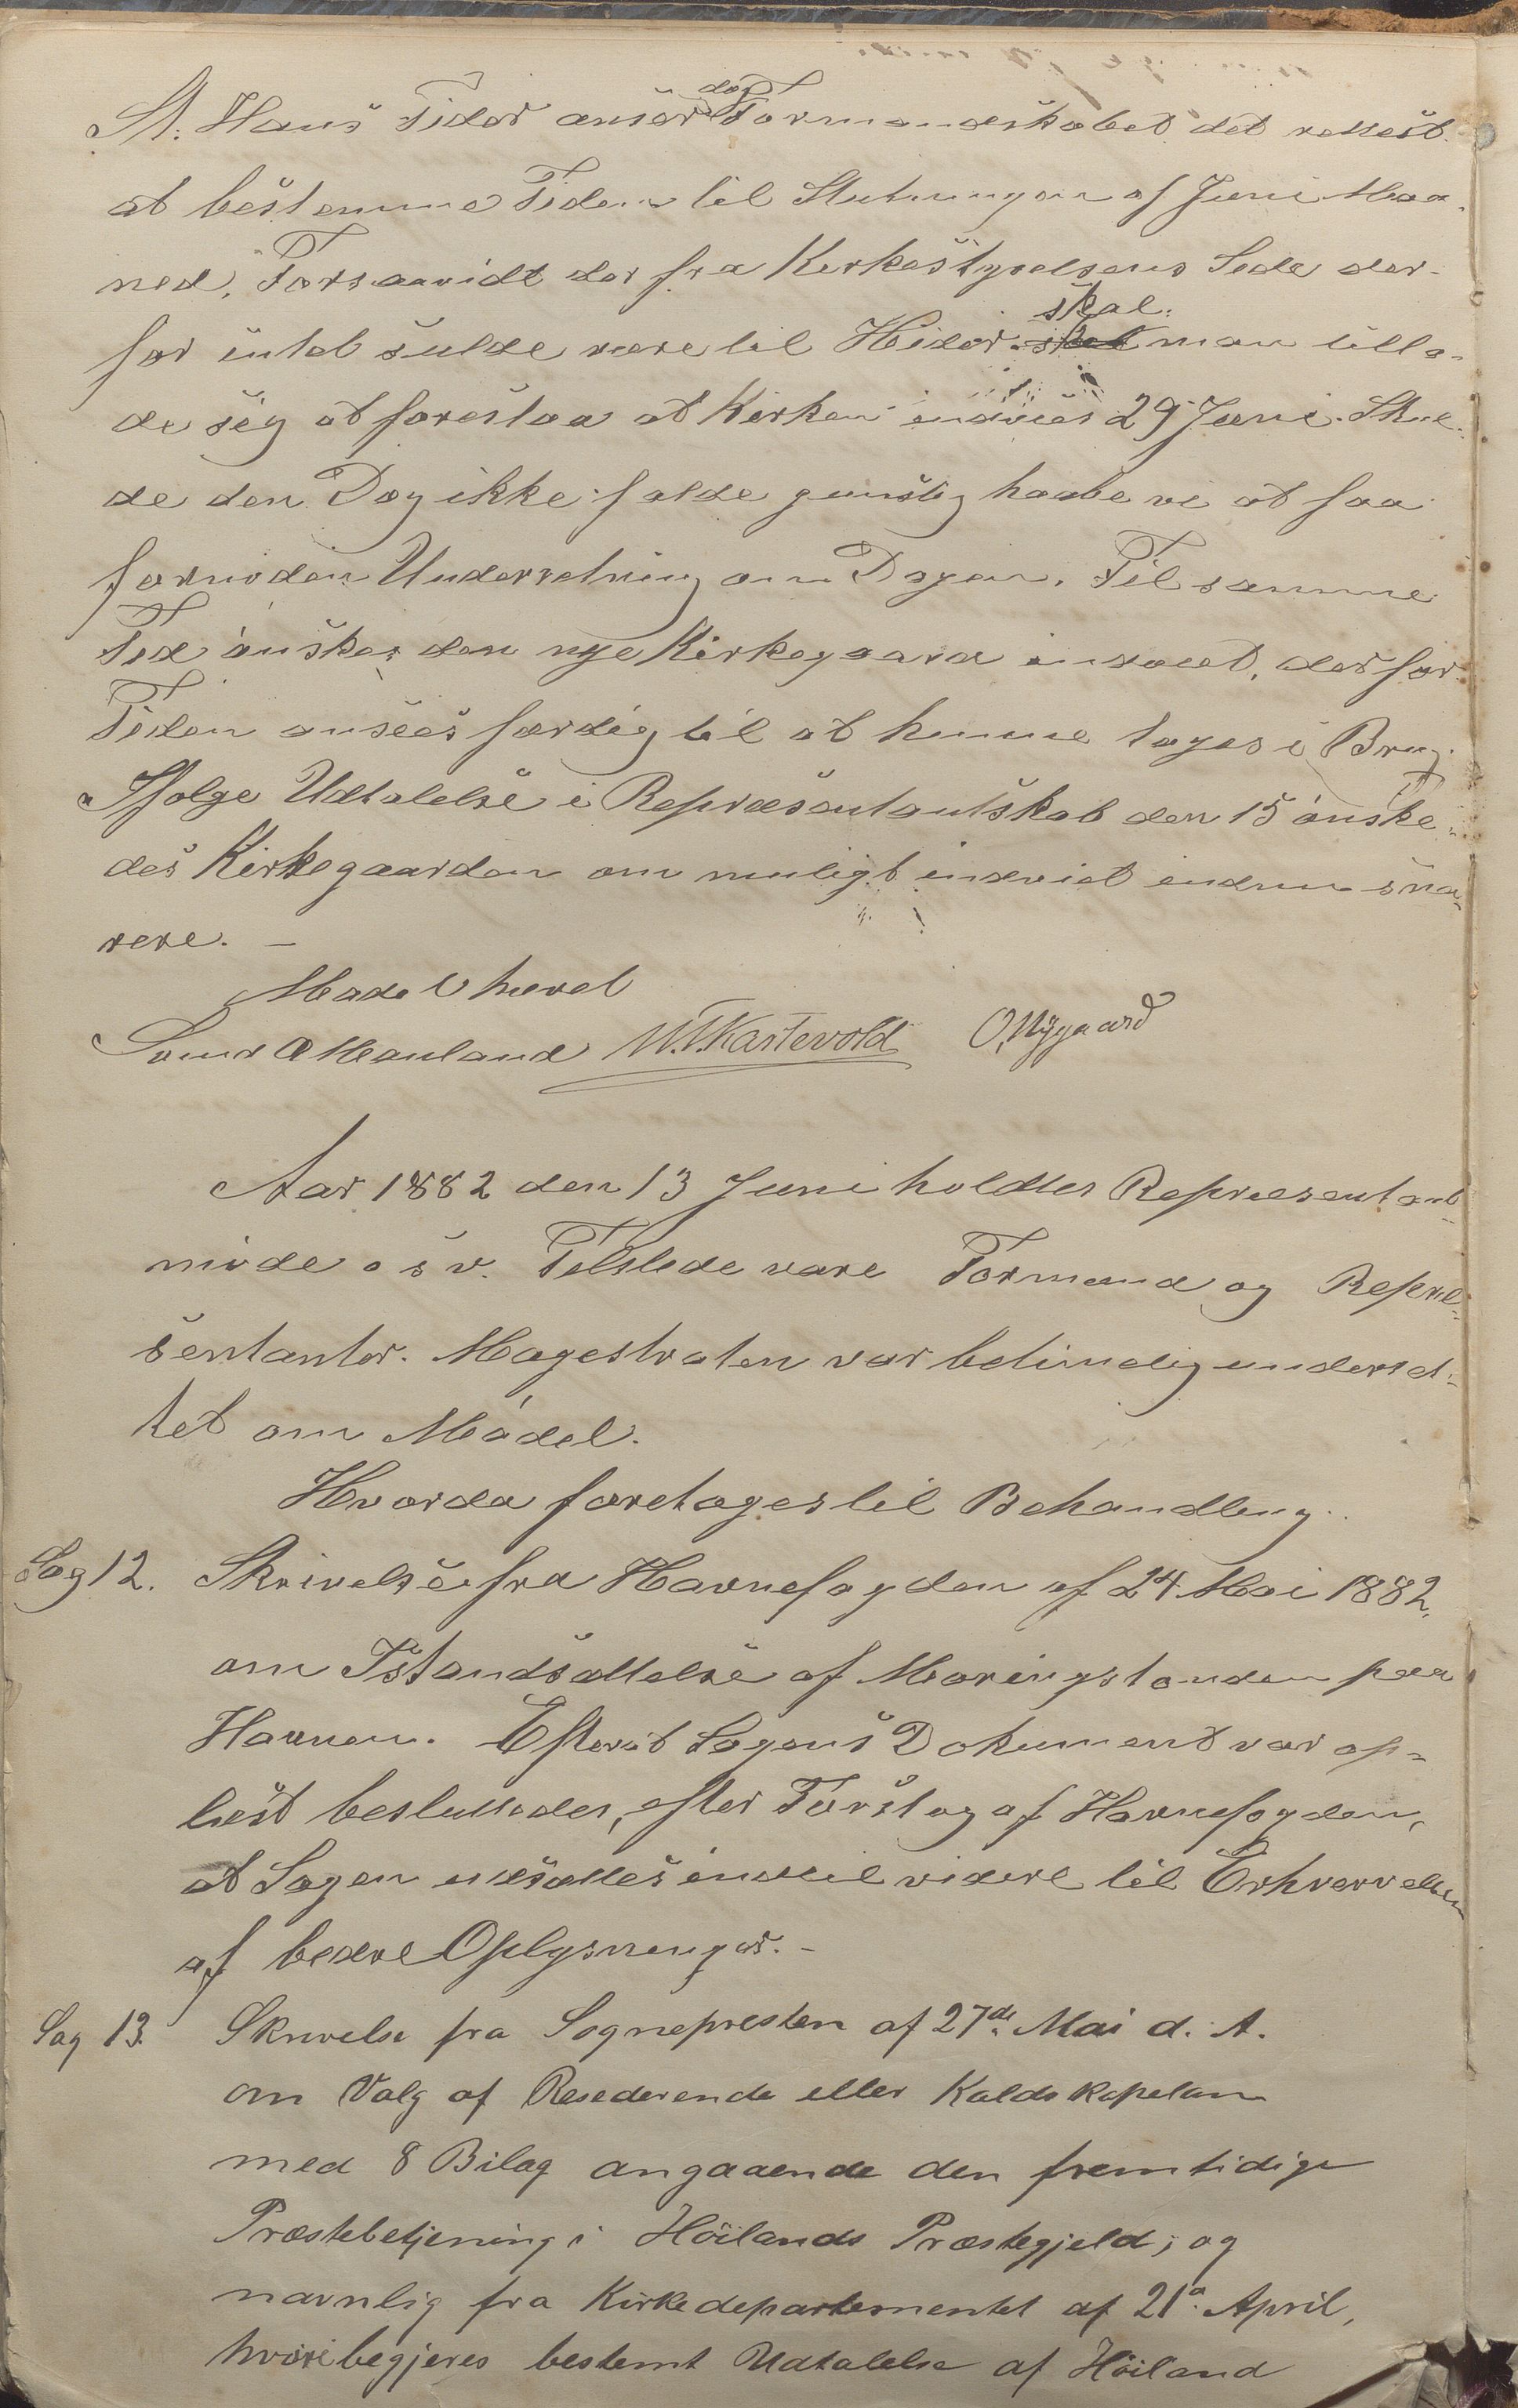 St. Hans Tider anser dog Formandskabet det rettest
at bestemme Tiden til Slutningen af Juni Maa-
ned. Forsaavidt der fra Kirkestyrelsens Side der-
for intet sulde være til Hider skal man tilla-
de sig at foreslaa at Kirken indvies 29 Juni. Skul-
de den Dag ikke falde gunstig haabe vi at faa
fornöden Underretning om Dagen. Til samme
Tid önskes den nye Kirkegaard indviet, der for
Tiden ansees færdig til at kunne tages i Brug.
Ifølge Udtalelse i Repræsentantskab den 15 önske-
des Kirkegaarden om muligt indviet endnu sna-
rere. –
Mødet hævet
Svend O Hauland W.T. Kartevold O. Nygaard
Aar 1882 den 13 Juni holdtes Repræsentant-
möde o s v. Tilstede vare Formænd og Repræ-
sentanter. Magestraten var betimelig underret-
tet om Mödet.
Hvorda foretages til Behandling.
Sag 12. Skrivelse fra Havnefogden af 24 Mai 1882,
om Istandsættelse af Moringstonden paa
Havnen. Efterat Sagens Dokument var op-
læst besluttedes, efter Forslag af Havnefogden,
at Sagen udsættes indtil videre til Erhvervelsen
af bedre Oplysninger. –
Sag 13. Skrivelse fra Sognepresten af 27de Mai d. A.
om Valg af Resederende eller Kaldskapelan
med 8 Bilag angaaende den fremtidige
Præstebetjening i Höilands Præstegjeld; og
navnlig fra Kirkedepartementet af 21a. April,
hvori begjeres bestemt Udtalelse af Höiland